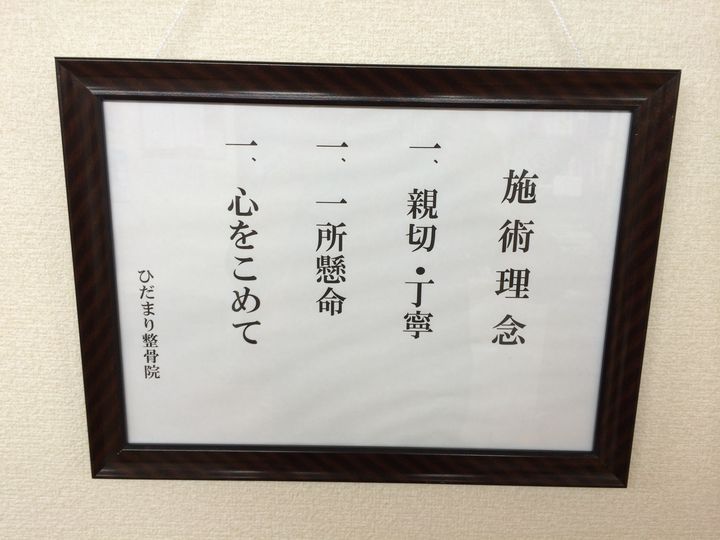 施術理念
一、親切・丁寧
一、一所懸命
一、心をこめて
ひだまり整骨院